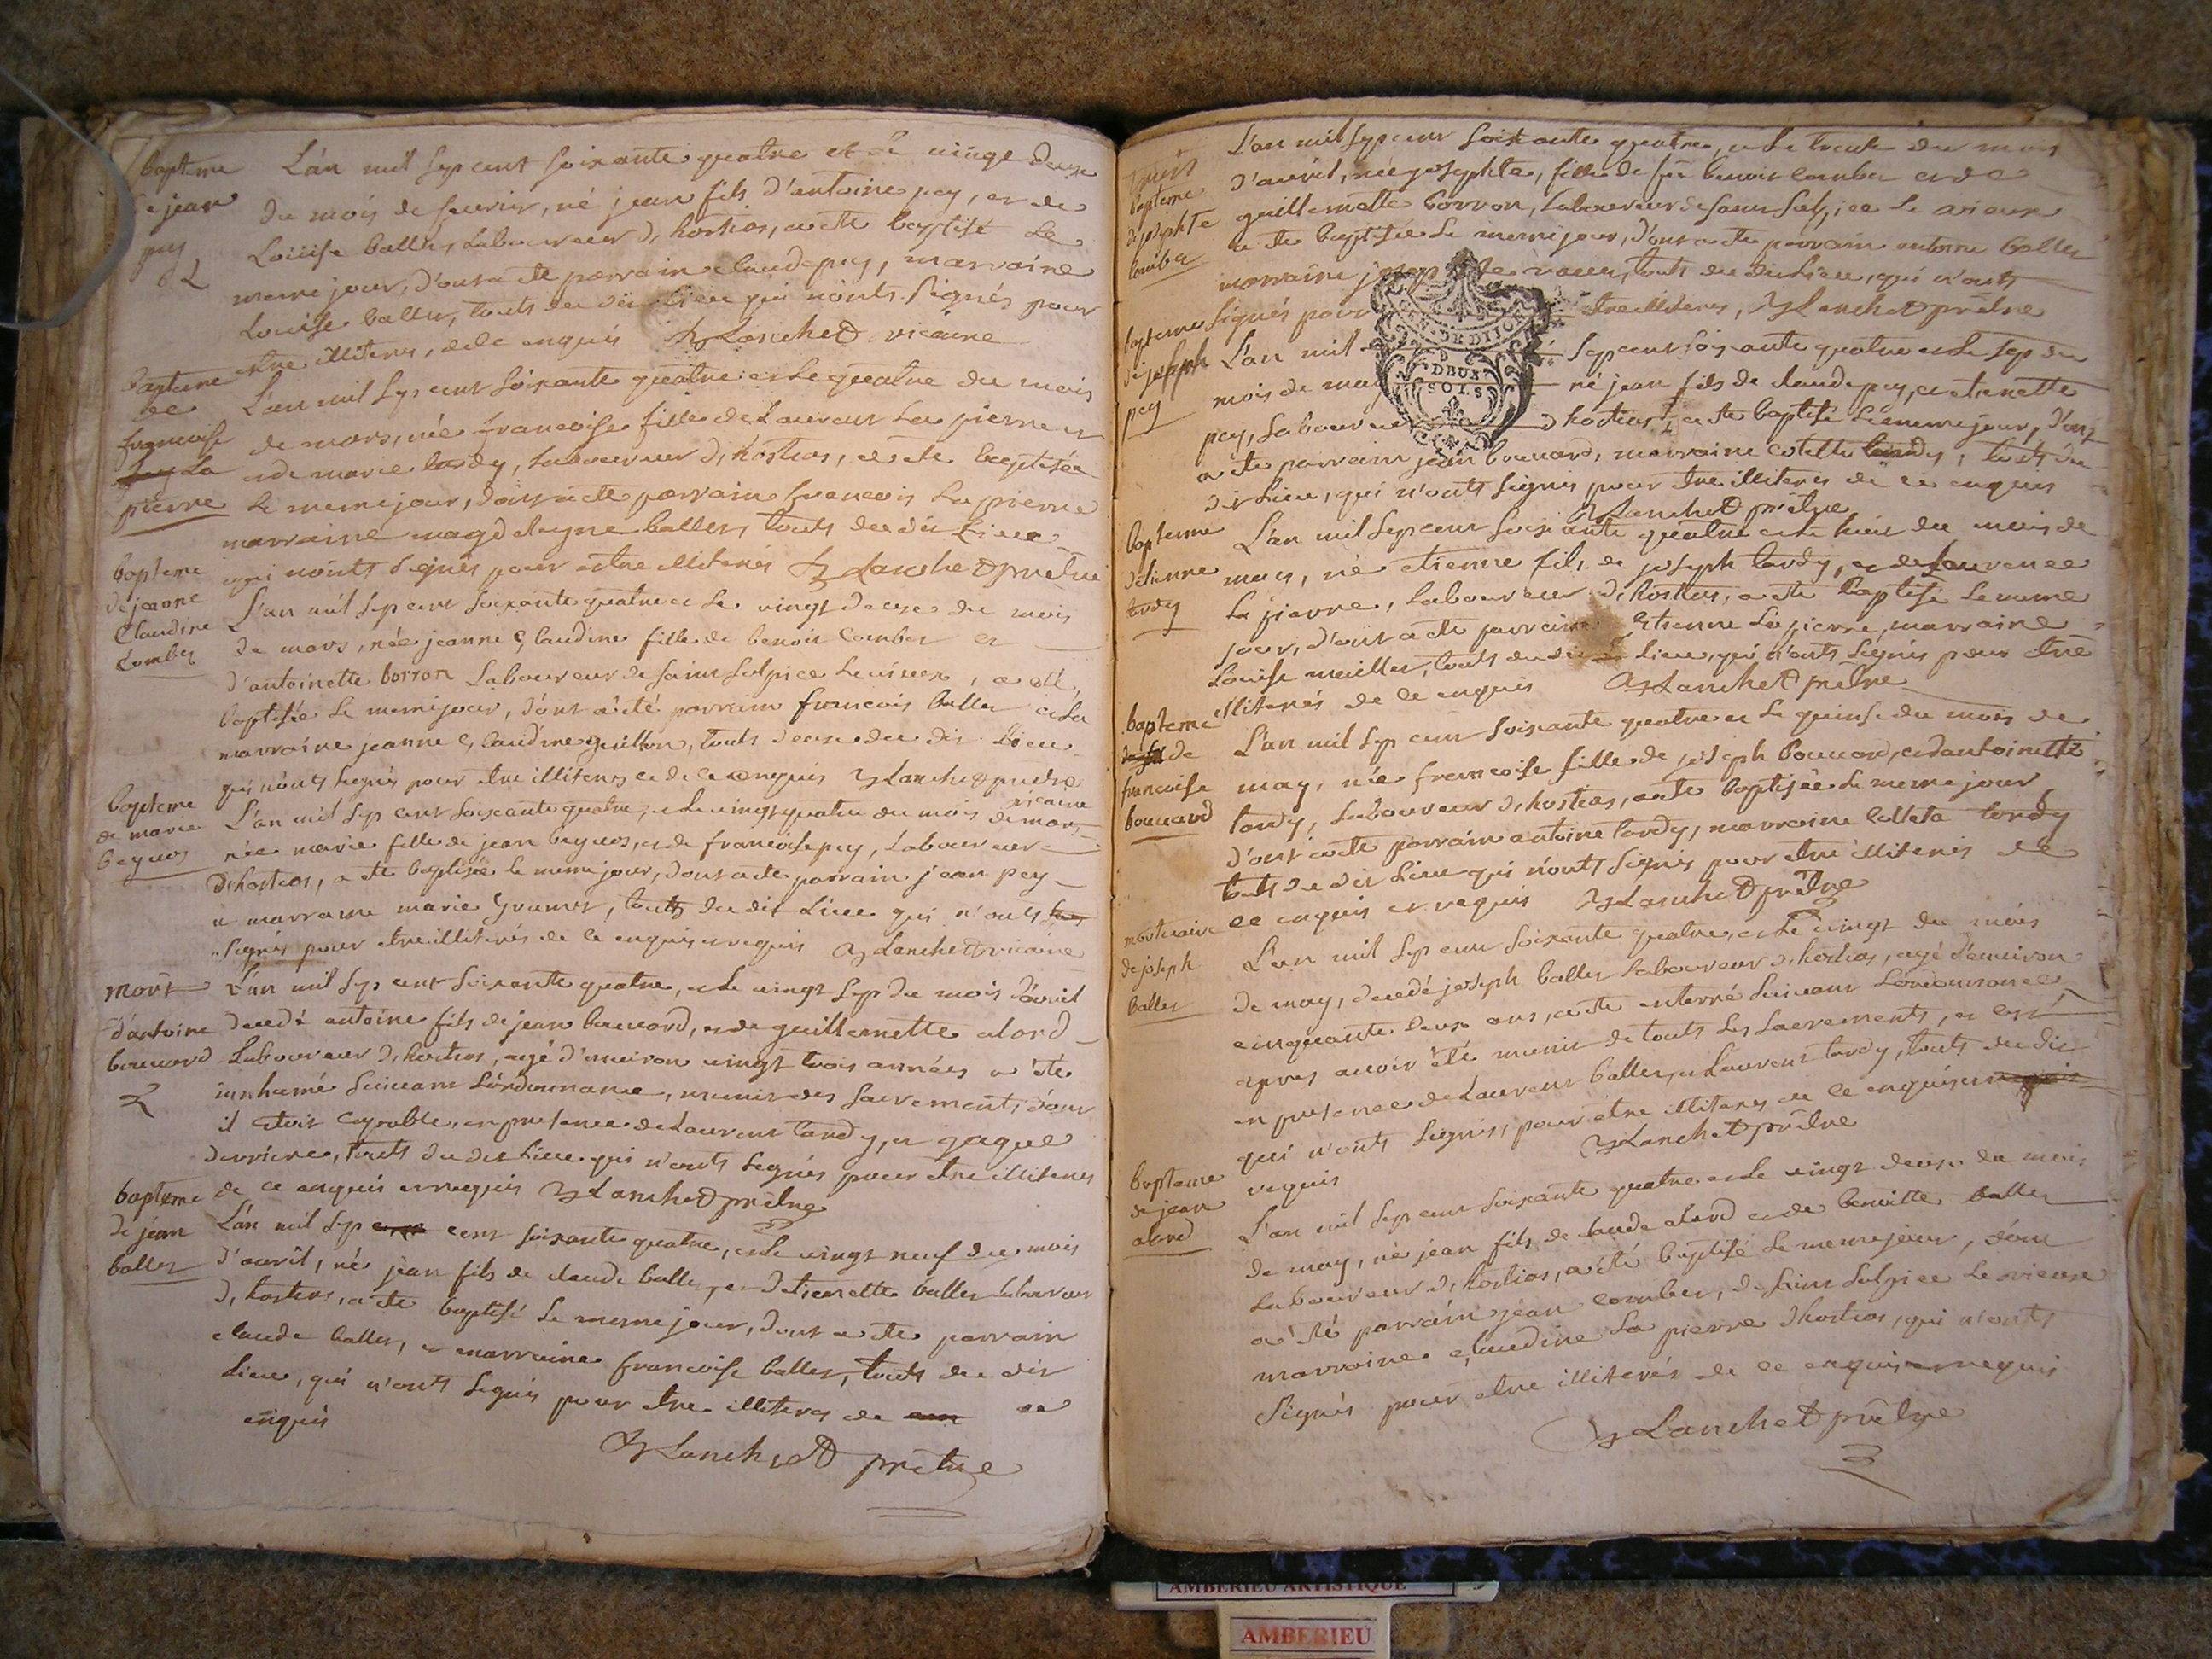 bapteme
de jean
pey
L'an mil sep cent soixante quatre et le vingt deuxe
du mois de feuvrier, né jean fils d'antoine pey, et de
Loüise baller, laboureur d, hostias, a ete baptisé le
meme jour, d'ont a ete parrain claude pey, marraine
Louise baller, touts du dit lieu qui n'onts signés pour
etre illiteres, de ce enquis Lanchet vicaire
bapteme
de
francoise
la
pierre
L'an mil sep cent soixante quatre et le quatre du mois
de mars, née francoise fille de Laurent La pierre
et de marie tardy, laboureur d, hostias, a ete baptisée
le meme jour, dont a ete parrain francois La pierre
marraine magdeleyne baller, touts du dit Lieu
qui n'onts signés pour estre illiterés Lanchet pretre
bapteme
de jeanne
Claudine
Combet
L'an mil sep cent soixante quatre et le vingt deuxe du mois
de mars, née jeanne Claudine fille de benoit combet et
d'antoinette borron Laboureur de saint sulpice le vieux, a eté
baptisée le meme jour, d'ont a eté parrain francois baller et la
marraine jeanne Claudine guillon, touts deux du dit Lieu
qui n'onts signés pour etre illiteres et de ce enquis Lanchet pretre
vicaire
bapteme
de marie
beguos
L'an mil sep cent soixante quatre, et le vingt quatre du mois de mars
née marie fille de jean beguos, et de francoise pey, Laboureur
d,hostias, a ete baptisée le meme jour, dont a ete parrain jean pey
et marraine marie grumet, touts du dit Lieu qui n'onts
signés pour etre illiterés de ce enquis et requis Lanchet vicaire
mort
d'antoine
bouuard
L'an mil sep cent soixante quatre, et le vingt sep du mois d'avril
decedé antoine fils de jean bouuard, et de guillemette alord
Laboureur d, hostias, agé d'enuiron vingt trois années a eté
innhumé suiuant L'ordonnance, munit des sacrements dont
il etoit capable, en presence de Laurent tardy, et jaque
derriere, touts du dit Lieu qui n'onts segnés pour etre illiteres
de ce enquis et requis Lanchet pretre
bapteme
de jean
baller
L'an mil sep cent soixante quatre, et le vingt neuf du mois
d'avril, né jean fils de claude baller, et d'etienette baller laboureur
d, hostias, a ete baptisé le meme jour, dont a ete parrain
claude baller, et marraine francoise baller, touts du dit
Lieu, qui n'onts signés pour etre illiteres de ce
enquis
Lanchet pretre
bapteme
de josephte
comba
L'an mil sep cent soixante quatre, et le trente du mois
d'avril, née josephte, fille de feu benoit comba et de
guillemette borron, Laboureur de saint sulpice le vieux
a ete baptisée le meme jour, d'ont a ete parrain antoine baller
marraine touts du dit Lieu, qui n'onts
signés pour etre illiteres, Lanchet pretre
bapteme
de joseph
pey
L'an mil sep cent soixante quatre et le sep du
mois de may né jean fils de claude pey, et etienette
pey, laboureur d hostias, a ete baptisé le meme jour, d'ont
a ete parrain jean bouuard, marraine colette tardy, touts du
dit Lieu, qui n'onts signés pour etre illiteres de ce enquis
Lanchet pretre
DE DIJON
DEUX
SOLS
bapteme
d'etienne
tardy
L'an mil sep cent soixante quatre et le huit du mois de
may, né etienne fils de joseph tardy, et de Laurence
La pierre, laboureur d, hostias, a ete baptisé le meme
jour, d'ont a ete parrain Etienne La pierre, marraine
Louise meiller, touts du dit Lieu, qui n'onts signés pour etre
illiterés de ce enquis Lanchet pretre
bapteme
de
francoise
bouuard
L'an mil sep cent soixante quatre et le quinse du mois de
may, née francoise fille de joseph bouuard, et d'antoinette
tardy, laboureur d, hostias, a ete baptisée le meme jour
d'ont a ete parrain antoine tardy, marraine colleta tardy
touts du dit Lieu qui n'onts signés pour etre illiterés de
ce enquis et requis Lanchet pretre
mortuaire
de joseph
baller
L'an mil sep cent soixante quatre, et le vingt du mois
de may, decedé joseph baller laboureur d, hostias, agé d'enuiron
cinquante deux ans, a ete enterré suiuant L'ordonnance
apres auoir eté munit de touts les sacrements, et cest
en presence de Laurent baller, et Laurent tardy, touts du dit
qui n'onts segnés, pour etre illiteres de ce enquis et
requis Lanchet pretre
bapteme
de jean
alord
L'an mil sep cent soixante quatre et le vingt deuxe du mois
de may, né jean fils de claude alord et de benoitte baller
Laboureur d, hostias, a eté baptisé le meme jour, dont
a eté parrain jean comber, de saint sulpice le vieux
marraine claudine La pierre d hostias, qui n'onts
signés pour etre illiterés de ce enquis et requis
Lanchet pretre
AMBERIEU ARTISTIQUE
AMBERIEU